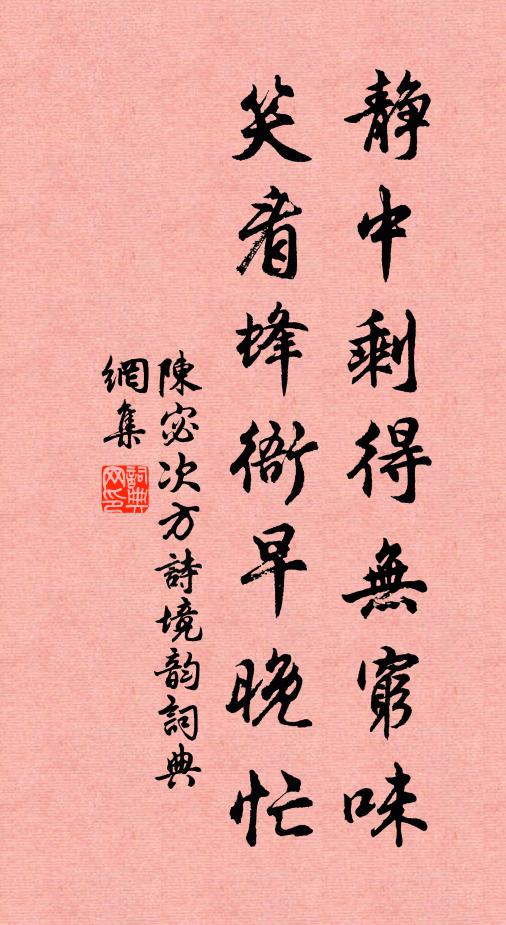 靜中剩得無窮味
笑看蜂衙早晚忙
陳宓次方詩境韵詞典
網集
詞典網印